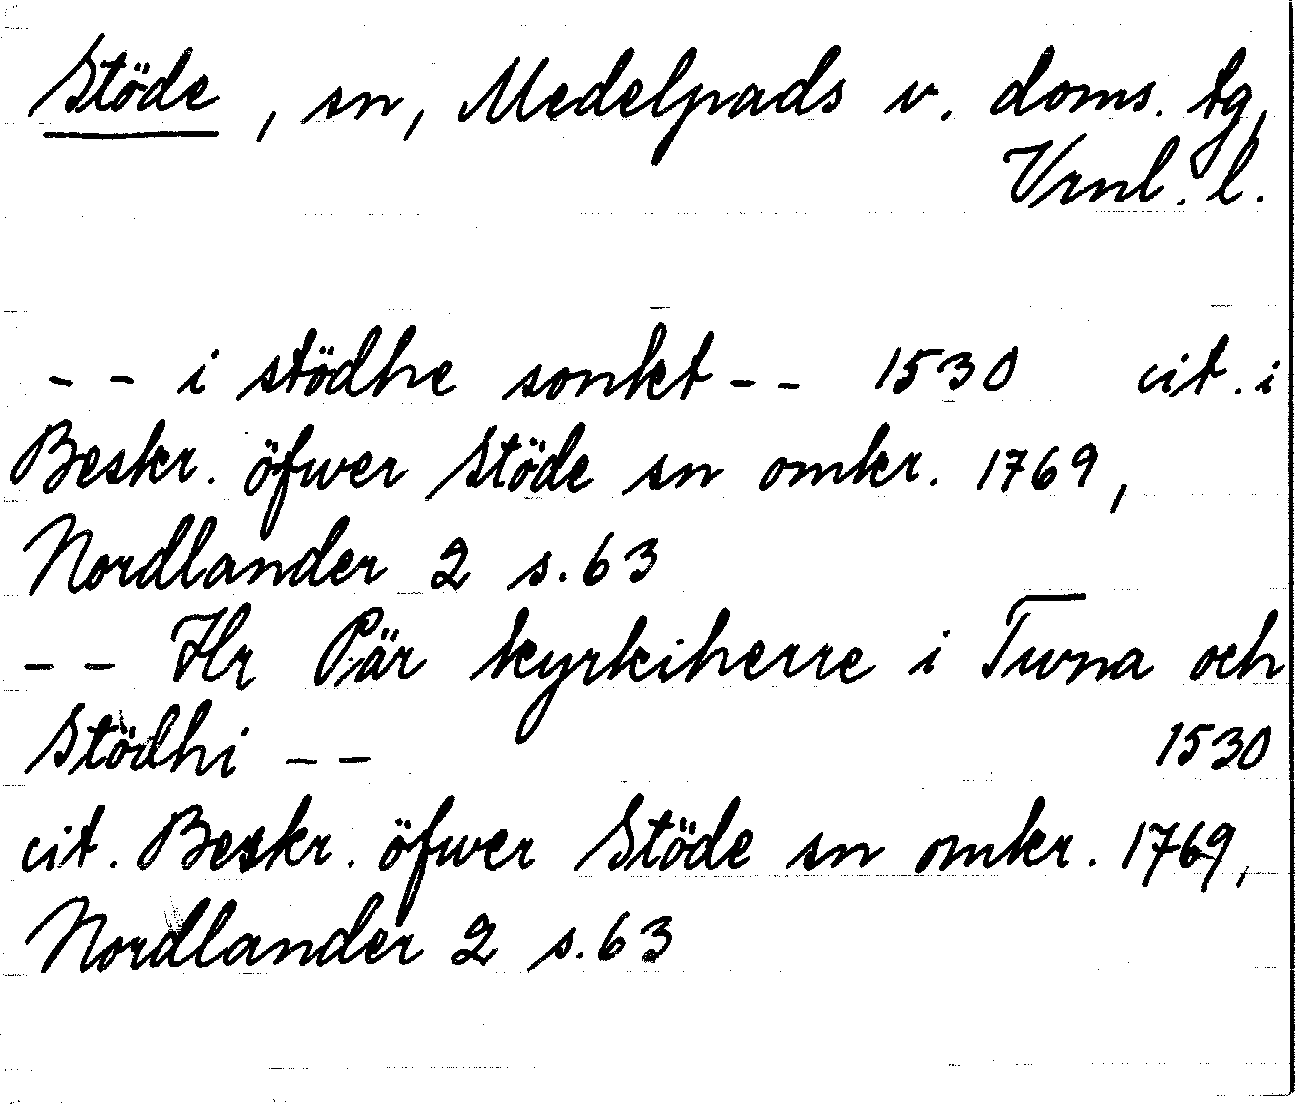 Stöde, sn, Medelpads v. doms. tg,
Vrnl. l.
-- i stödhe sonkt -- 1530 cit. i
Beskr. öfwer Stöde sn omkr. 1769,
Nordlander 2 s. 63
-- Hr Pär kyrkiherre i Twna och
Stödhi -- 1530
cit. Beskr. öfwer Stöde sn omkr. 1769,
Nordlander 2 s. 63